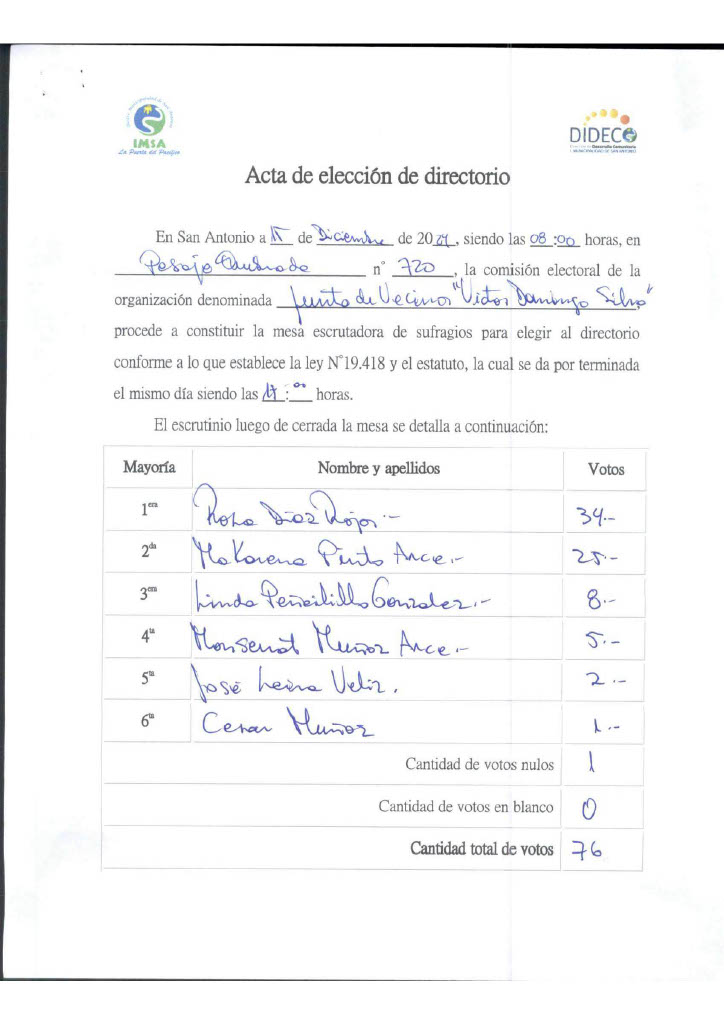 IMSA
La Puerta del Pacífico
DIDECO
Acta de elección de directorio
En San Antonio a de Diciembre de 2021, siendo las 08:00 horas, en
Pasaje Quebrada n° 720, la comisión electoral de la
organización denominada Junta de Vecinos "Victor Domingo Silva"
procede a constituir la mesa escrutadora de sufragios para elegir al directorio
conforme a lo que establece la ley N°19.418 y el estatuto, la cual se da por terminada
el mismo día siendo las :00 horas.
El escrutinio luego de cerrada la mesa se detalla a continuación:
Mayoría Nombre y apellidos Votos
1era Rosa Díaz Rojas.- 34.-
2da Makarena Pinto Arce.- 25.-
3era Linda Peñailillo Gonzalez.- 8.-
4ta Monserrat Muñoz Arce.- 5.-
5ta José Leiva Veliz. 2.-
6ta Cesar Muñoz 1.-
Cantidad de votos nulos 1
Cantidad de votos en blanco 0
Cantidad total de votos 76